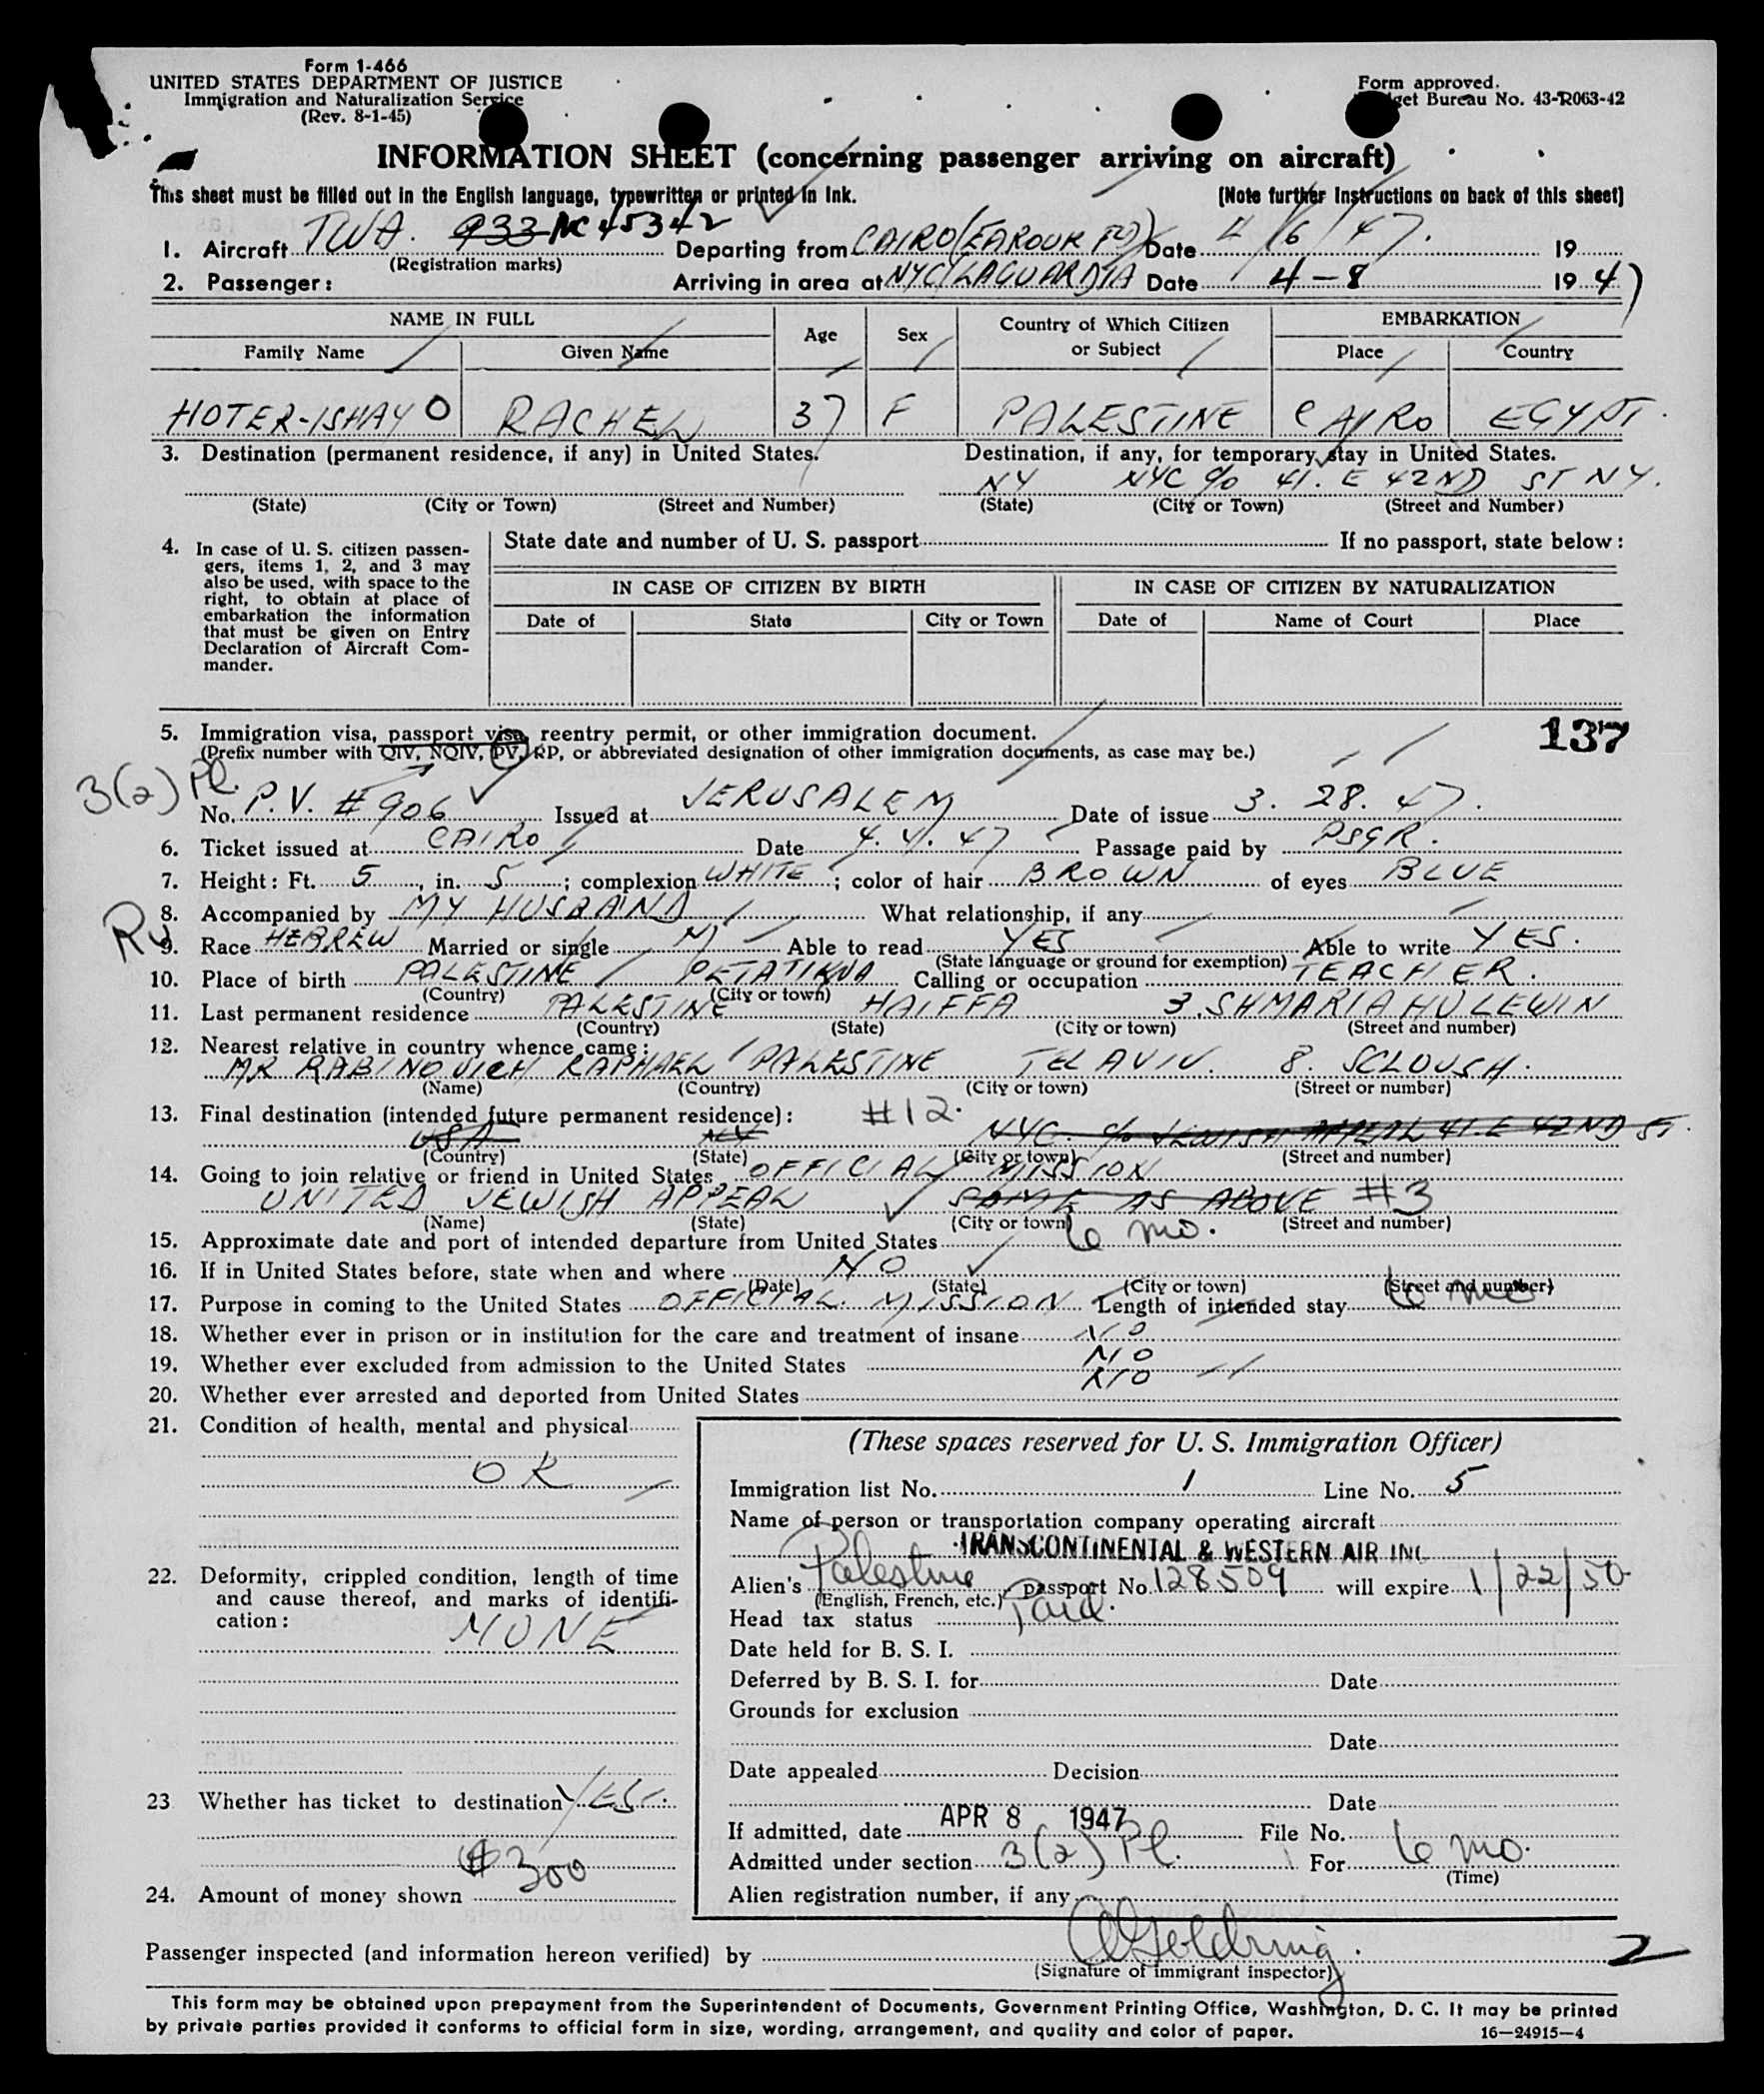 Form 1-466
UNITED STATES DEPARTMENT OF JUSTICE
Immigration and Naturalization Service
(Rev. 8-1-45)
Form approved.
get Bureau No. 43-R063-42
INFORMATION SHEET (concerning passenger arriving on aircraft)
This sheet must be filled out in the English language, typewritten or printed in ink.
(Note further instructions on back of this sheet)
1. Aircraft TWA. 933 NC 45342 Departing from CAIRO (FAROUK Date 4/6/47. 19
(Registration marks)
2. Passenger: Arriving in area at NYC/LAGUARDIA Date 4-8 1947
NAME IN FULL Age Sex Country of Which Citizen or Subject EMBARKATION
Family Name Given Name Place Country
HOTER-ISHAY O RACHEL 37 F PALESTINE CAIRO EGYPT.
3. Destination (permanent residence, if any) in United States. Destination, if any, for temporary stay in United States.
NY NYC c/o 41. E 42ND ST NY.
(State) (City or Town) (Street and Number) (State) (City or Town) (Street and Number)
4. In case of U. S. citizen passengers, items 1, 2, and 3 may also be used, with space to the right, to obtain at place of embarkation the information that must be given on Entry Declaration of Aircraft Commander.
State date and number of U. S. passport If no passport, state below:
IN CASE OF CITIZEN BY BIRTH IN CASE OF CITIZEN BY NATURALIZATION
Date of State City or Town Date of Name of Court Place
5. Immigration visa, passport visa, reentry permit, or other immigration document.
137
(Prefix number with QIV, NQIV, PV, RP, or abbreviated designation of other immigration documents, as case may be.)
3(2) Pl.
No. P.V. #906 Issued at JERUSALEM Date of issue 3. 28. 47.
6. Ticket issued at CAIRO Date 4. 4. 47 Passage paid by PSGR.
7. Height: Ft. 5, in. 5; complexion WHITE; color of hair BROWN of eyes BLUE
8. Accompanied by MY HUSBAND What relationship, if any
9. Race HEBREW Married or single M Able to read YES Able to write YES.
(State language or ground for exemption)
10. Place of birth PALESTINE PETATIKVA Calling or occupation TEACHER.
(Country) (City or town)
11. Last permanent residence PALESTINE HAIFFA 3. SHMARIAHU LEWIN
(Country) (State) (City or town) (Street and number)
12. Nearest relative in country whence came:
MR RABINOVICH RAPHAEL PALESTINE TEL AVIV. 8. SCLOUSH.
(Name) (Country) (City or town) (Street or number)
13. Final destination (intended future permanent residence): #12.
USA NY NYC. c/o JEWISH APPEAL 41. E 42ND ST.
(Country) (State) (City or town) (Street and number)
14. Going to join relative or friend in United States OFFICIAL MISSION
UNITED JEWISH APPEAL SAME AS ABOVE #3
(Name) (State) (City or town) (Street and number)
15. Approximate date and port of intended departure from United States 6 mo.
16. If in United States before, state when and where NO
(Date) (State) (City or town) (Street and number)
17. Purpose in coming to the United States OFFICIAL MISSION Length of intended stay 6 mo
18. Whether ever in prison or in institution for the care and treatment of insane NO
19. Whether ever excluded from admission to the United States NO
20. Whether ever arrested and deported from United States NO
21. Condition of health, mental and physical
OK
22. Deformity, crippled condition, length of time and cause thereof, and marks of identification:
NONE
23 Whether has ticket to destination YES.
$300
24. Amount of money shown
(These spaces reserved for U. S. Immigration Officer)
Immigration list No. 1 Line No. 5
Name of person or transportation company operating aircraft
TRANSCONTINENTAL & WESTERN AIR INC
Alien's Palestine passport No. 128509 will expire 1/22/50
(English, French, etc.)
Head tax status Paid.
Date held for B. S. I.
Deferred by B. S. I. for Date
Grounds for exclusion
Date
Date appealed Decision
Date
If admitted, date APR 8 1947 File No.
Admitted under section 3(2) Pl. For 6 mo.
(Time)
Alien registration number, if any
Passenger inspected (and information hereon verified) by
(Signature of immigrant inspector)
2
This form may be obtained upon prepayment from the Superintendent of Documents, Government Printing Office, Washington, D. C. It may be printed
by private parties provided it conforms to official form in size, wording, arrangement, and quality and color of paper.
16—24915-4